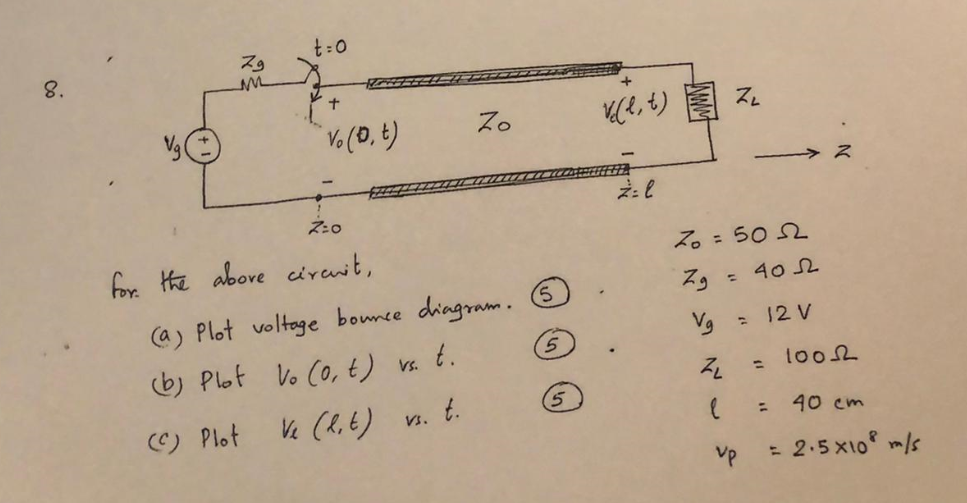 8.
Zg
t=0
+
Vo(0,t)
Zo
+
Vℓ(ℓ,t)
ZL
Vg
+
-
-
-
z
Z=0
Z=ℓ
For the above circuit,
(a) Plot voltage bounce diagram. 5
(b) Plot Vo (0,t) vs. t. 5
(c) Plot Vℓ (ℓ,t) vs. t. 5
Zo = 50 Ω
Zg = 40 Ω
Vg = 12 V
ZL = 100 Ω
ℓ = 40 cm
vp = 2.5 x 10⁸ m/s